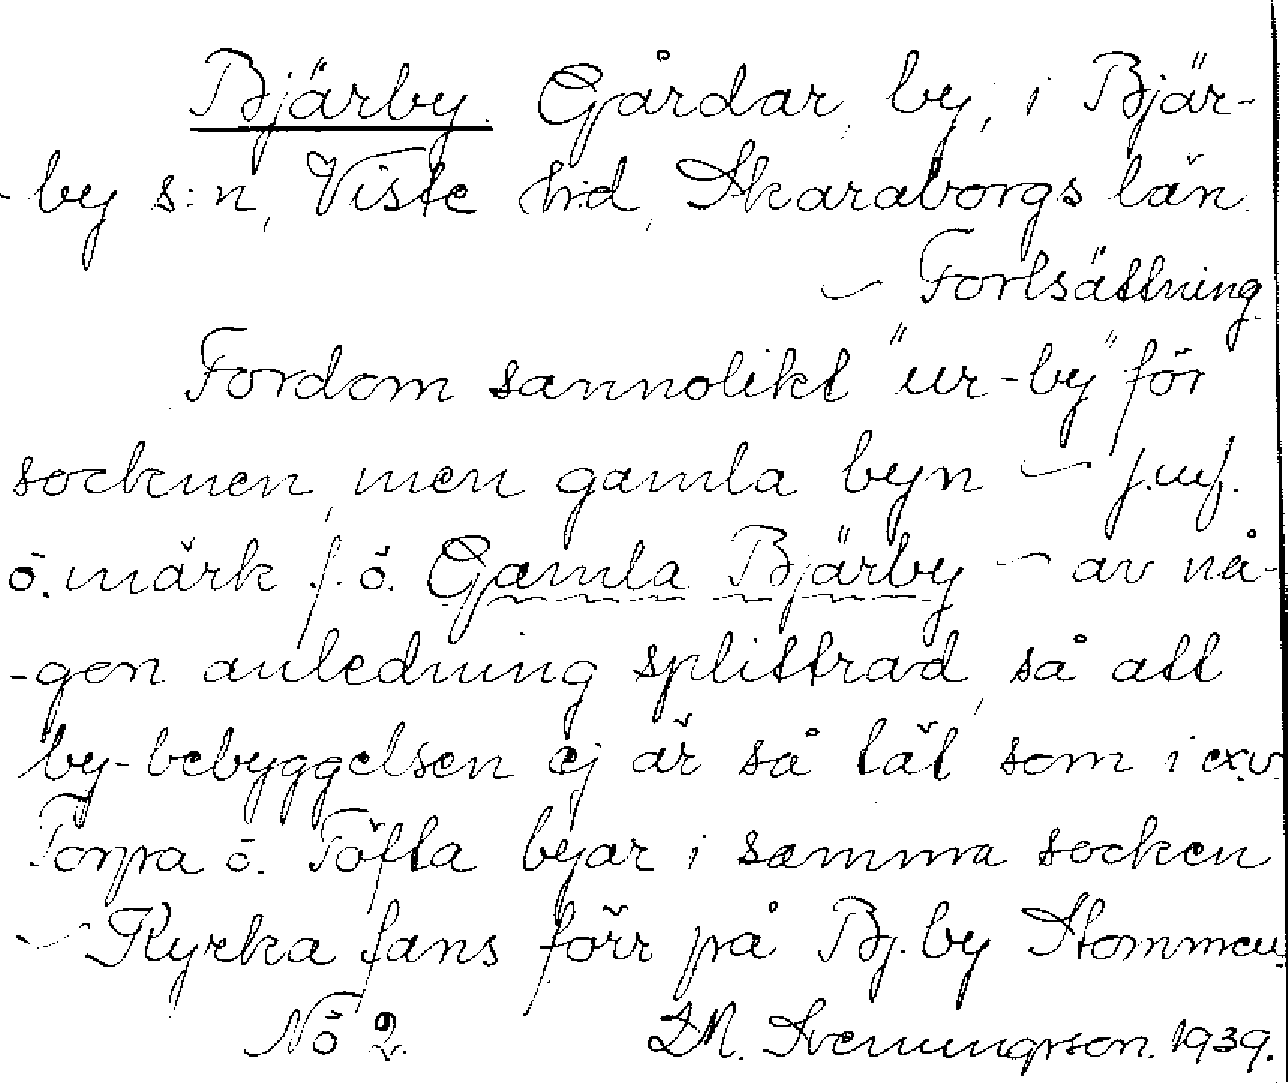 Bjärby. Gårdar, by, i Bjär-
-by s:n, Viste h:d, Skaraborgs län.
– Fortsättning.
Fordom sannolikt "ur-by" för
socknen, men gamla byn – j.mf.
o. märk f. ö. Gamla Bjärby – av nå-
-gon anledning splittrad, så att
by-bebyggelsen ej är så tät som i ex.v.
Torpa o. Töfta byar i samma socken
– Kyrka fans förr på Bj.by Stommen,
No 2. Svenungsson. 1939.